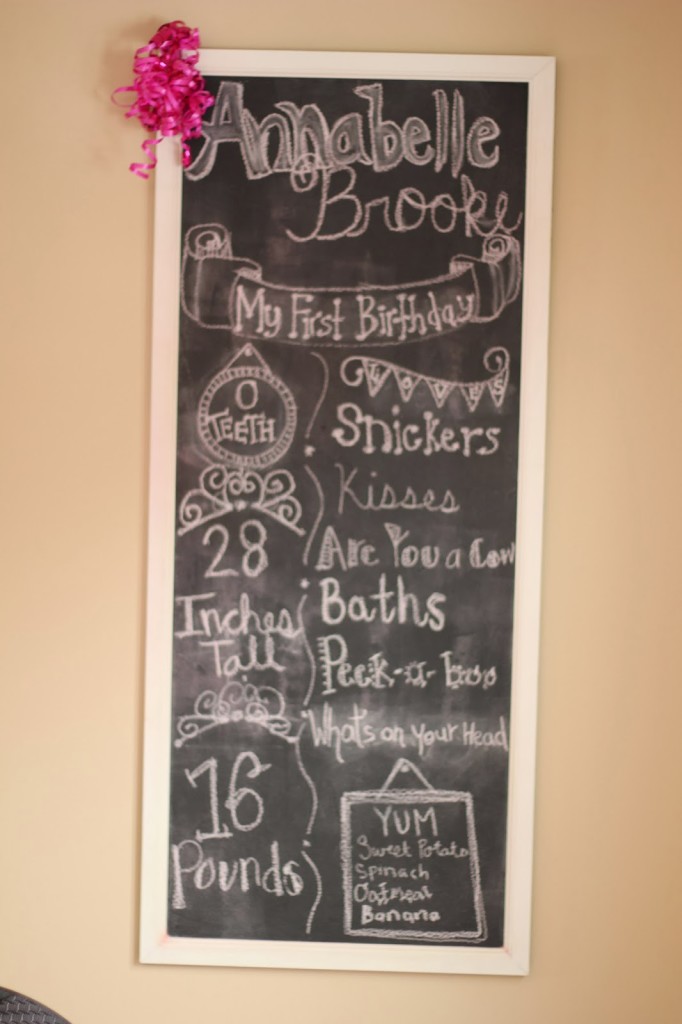 Annabelle
Brooke
My First Birthday
0
TEETH
28
Inches
Tall
16
Pounds
LOVES
Snickers
Kisses
Are You a Cow
Baths
Peek-a-boo
What's on your Head
YUM
Sweet Potato
Spinach
Oatmeal
Banana